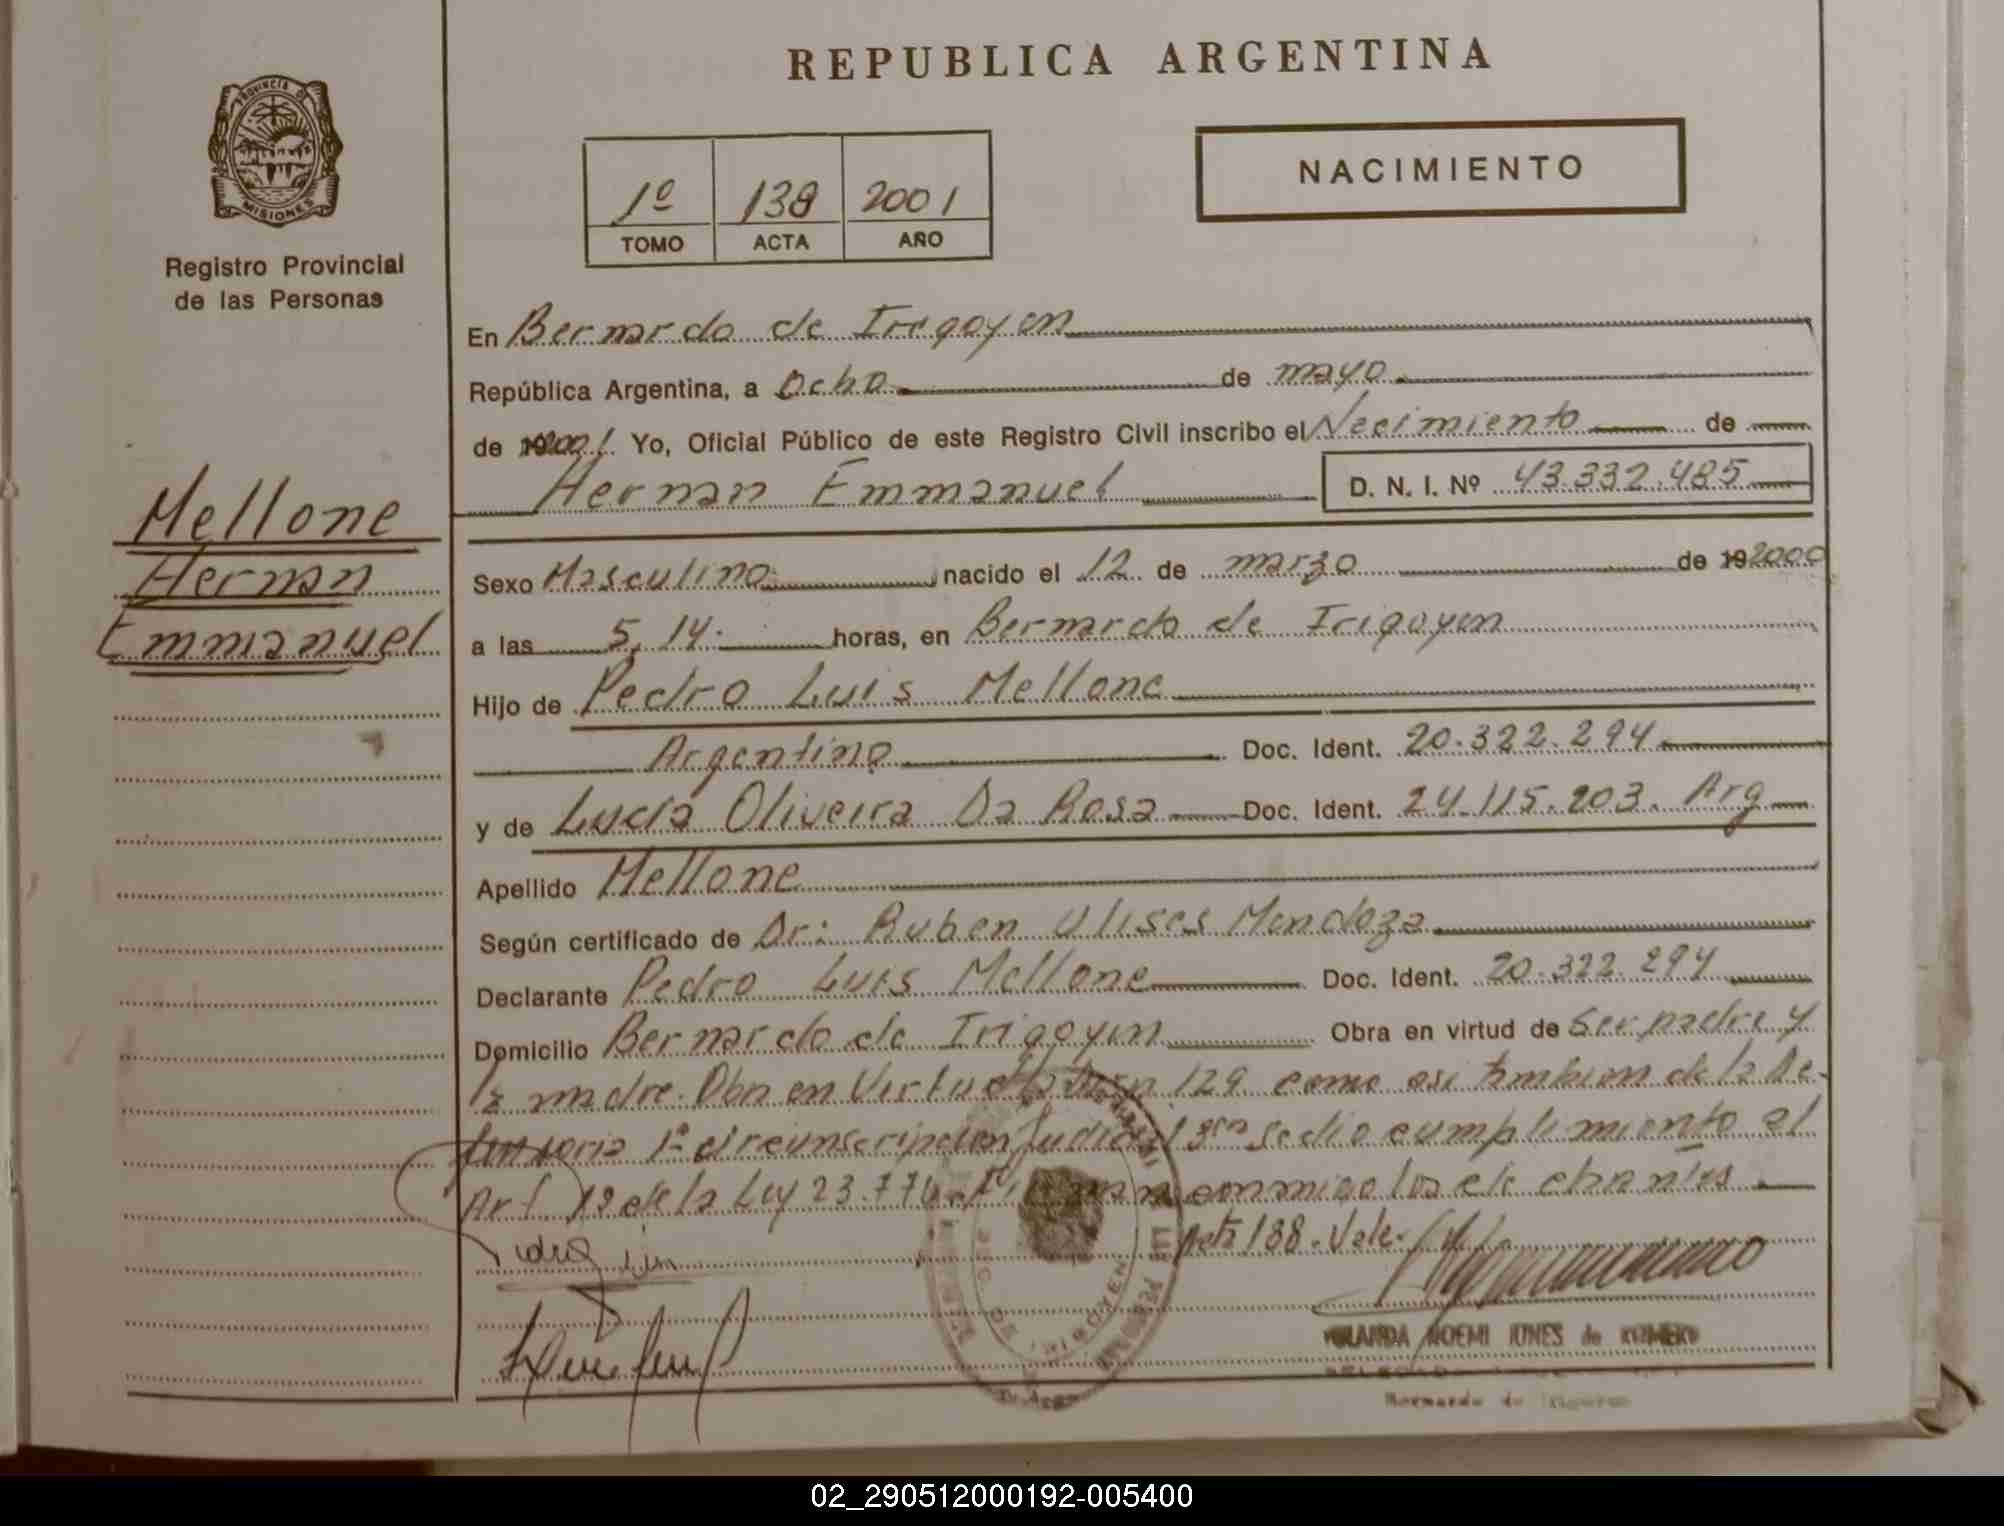 REPUBLICA ARGENTINA
PROVINCIA DE
MISIONES
Registro Provincial
de las Personas
1º 138 2001
TOMO ACTA AÑO
NACIMIENTO
En Bernardo de Irigoyen
República Argentina, a Ocho de mayo
de 2001. Yo, Oficial Público de este Registro Civil inscribo el Nacimiento de
Hernan Emmanuel D. N. I. Nº 43.332.485
Mellone
Hernan
Emmanuel
Sexo Masculino nacido el 12 de marzo de 192000
a las 5,14. horas, en Bernardo de Irigoyen
Hijo de Pedro Luis Mellone
Argentino Doc. Ident. 20.322.294
y de Lucia Oliveira Da Rosa Doc. Ident. 24.115.203. Arg
Apellido Mellone
Según certificado de Dr: Ruben Ulises Mendoza
Declarante Pedro Luis Mellone Doc. Ident. 20.322.294
Domicilio Bernardo de Irigoyen Obra en virtud de Ser padre y
la madre. Obra en Virtud 129 como asi tambien de la De-
fensoria 1ª circunscripcion Judicial se dio cumplimiento al
Art. 12 de la Ley 23.776. Firman conmigo los declarantes
Acta 138. Vale.
YOLANDA NOEMI JONES de ROMERO
Bernardo de Irigoyen
02_290512000192-005400